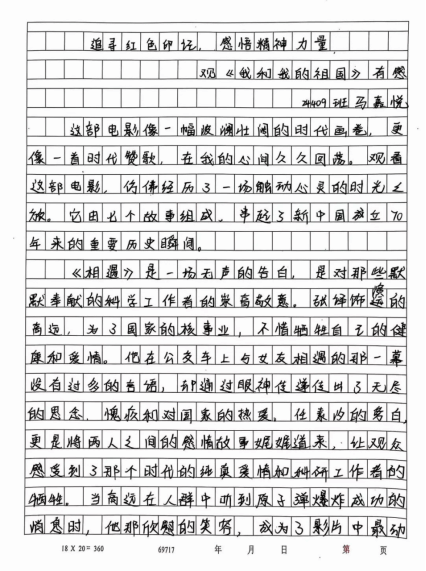 追寻红色印记，感悟精神力量
观《我和我的祖国》有感
24409班马嘉悦
这部电影像一幅波澜壮阔的时代画卷，更
像一首时代赞歌，在我的心间久久回荡。观看
这部电影，仿佛经历了一场触动心灵的时光之
旅。它由七个故事组成，串起了新中国成立70
年来的重要历史瞬间。
《相遇》是一场无声的告白，是对那些默
默奉献的科学工作者的崇高敬意。张译饰演的
高远，为了国家的核事业，不惜牺牲自己的健
康和爱情。他在公交车上与女友相遇的那一幕
没有过多的言语，却通过眼神传递出了无尽
的思念、愧疚和对国家的热爱。任素汐的旁白，
更是将两人之间的感情故事娓娓道来，让观众
感受到了那个时代的纯真爱情和科研工作者的
牺牲。当高远在人群中听到原子弹爆炸成功的
消息时，他那欣慰的笑容，成为了影片中最动
18 X 20 = 360 69717 年 月 日 第 页